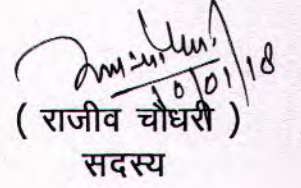 10/01/18
( राजीव चौधरी )
सदस्य